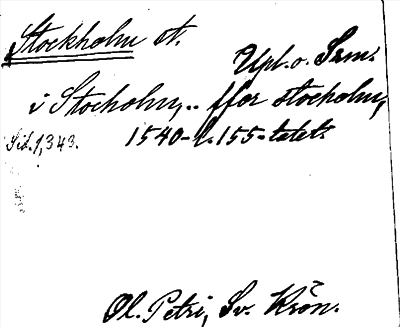 Stockholm st.
Upl. o. Srm.
i Stocholm,.. ffor stocholm,
Sid. 1, 343. 1540-t. 155-talet.
Ol. Petri, Sv. Krön.